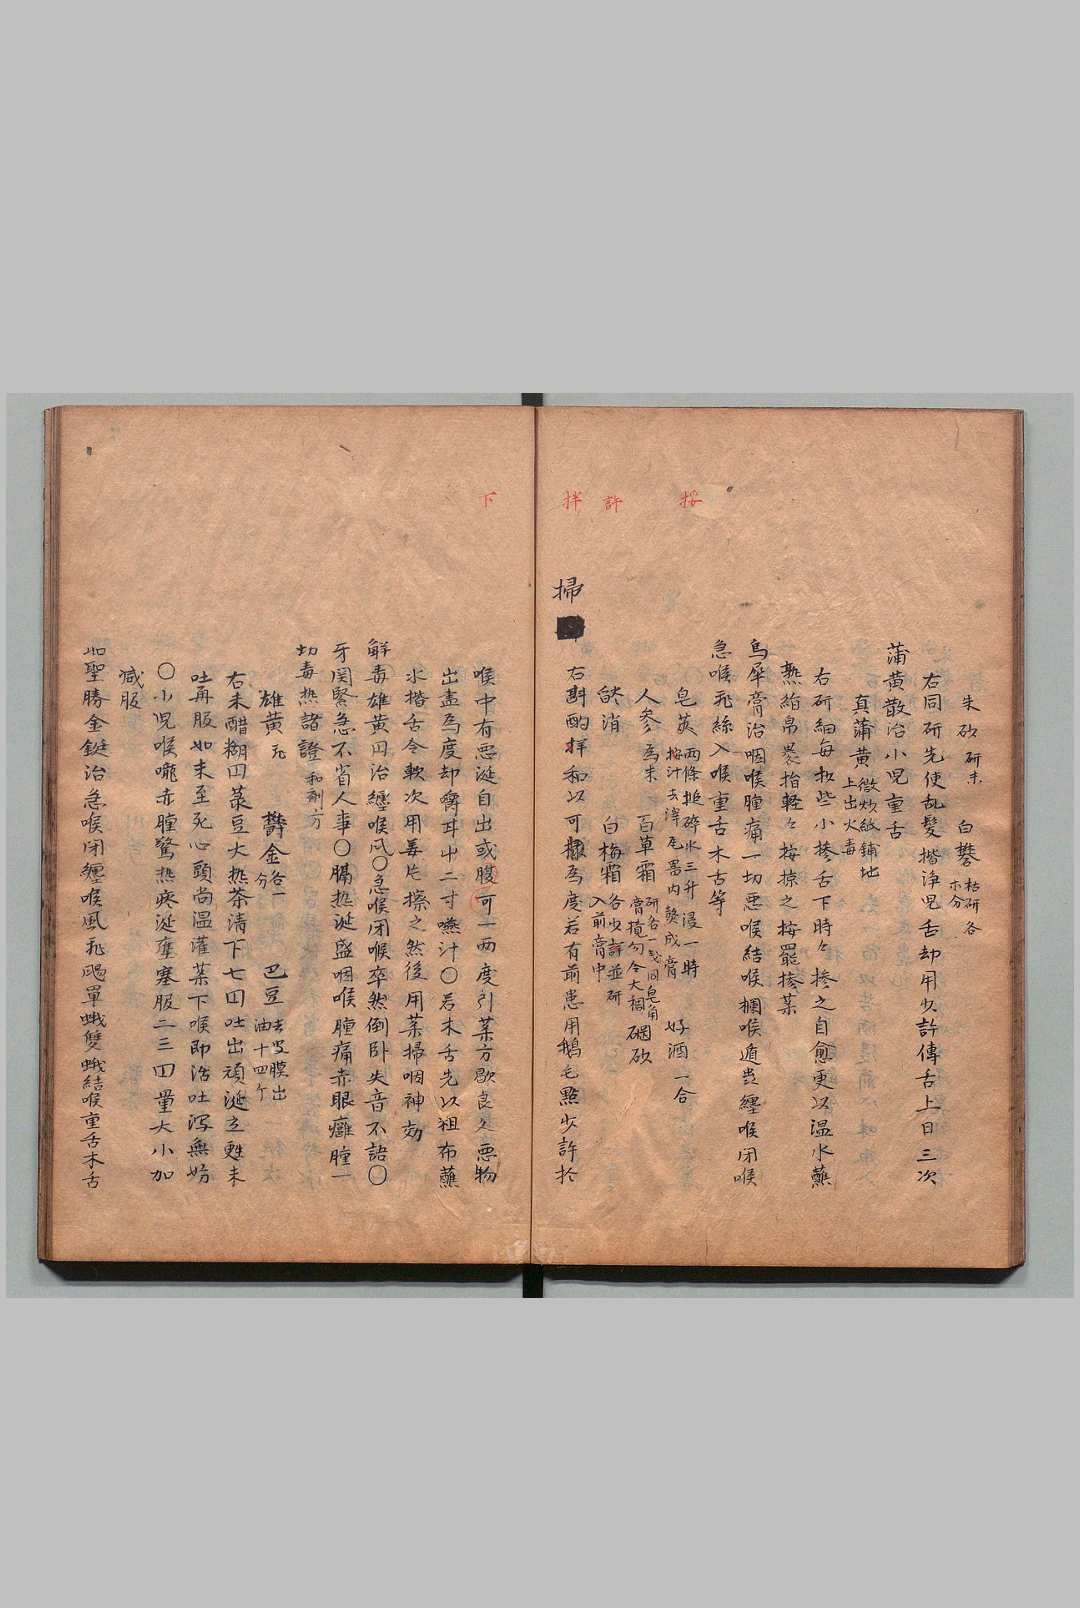 朱砂研末 白礬枯研各等分
右同研先使乱髮揩浄児舌却用少許傳舌上日三次
蒲黄散治小児重舌
真蒲黄微炒紙鋪地上出火毒
右研細每抄些小掺舌下時々掺之自愈更以温水蘸
熟絹帛裹指軽々按掠之按罷掺薬
烏犀膏治咽喉腫痛一切悪喉結喉
急喉飛絲入喉重舌木舌等
皂莢両條搥碎水三升浸一時
按汁去滓瓦器内熬成膏 好酒一合
人参為末 百草霜研各一銭同皂角膏 硇砂
焰消 白梅霜各少許並研入前膏中
右斟酌拌和以可為度若有前患用鵝毛點少許於
掃
按
許
拌
下
喉中有悪涎自出或腹可一両度引薬方歇良久悪物
出盡為度却嚼甘中二寸嚥汁〇若木舌先以粗布蘸
水揩舌令軟次用姜片擦之然後用薬掃咽神効
解毒雄黄円治纏喉风〇急喉闭喉卒然倒卧失音不語〇
牙関緊急不省人事〇膈热涎盛咽喉腫痛赤眼癰腫一
切毒热諸證和剤方
雄黄飛 欝金各一分 巴豆去皮膜出油十四个
右末醋糊円菉豆大热茶清下七円吐出頑涎立甦未
吐再服如未至死心頭尚温灌薬下喉即活吐泻無妨
〇小児喉嚨赤腫驚热痰涎壅塞服二三円量大小加
减服
聖勝金鋌治急喉闭纏喉風飛颺單蛾雙蛾結喉重舌木舌